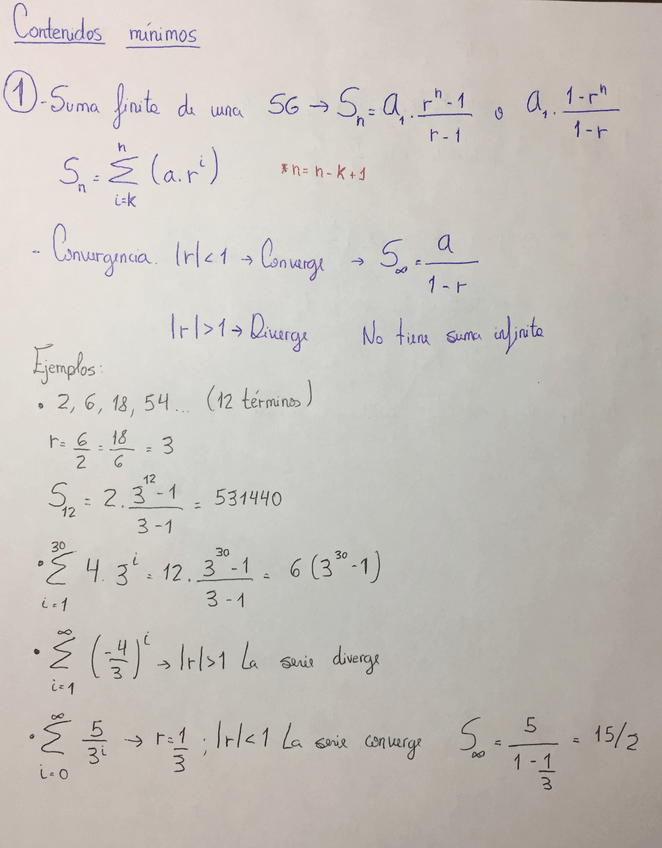 Contenidos mínimos
① - Suma finita de una SG → Sₙ = a₁ · (rⁿ - 1)/(r - 1) o a₁ · (1 - rⁿ)/(1 - r)
Sₙ = ∑_{i=k}^{n} (a.rⁱ) *n = n - k + 1
- Convergencia. |r| < 1 → Converge → S_∞ = a/(1 - r)
|r| > 1 → Diverge No tiene suma infinita
Ejemplos:
• 2, 6, 18, 54... (12 términos)
r = 6/2 = 18/6 = 3
S₁₂ = 2 . (3¹² - 1)/(3 - 1) = 531440
• ∑_{i=1}^{30} 4 . 3ⁱ = 12 . (3³⁰ - 1)/(3 - 1) = 6 (3³⁰ - 1)
• ∑_{i=1}^{∞} (-4/3)ⁱ → |r| > 1 La serie diverge
• ∑_{i=0}^{∞} 5/3ⁱ → r = 1/3 ; |r| < 1 La serie converge S_∞ = 5/(1 - 1/3) = 15/2